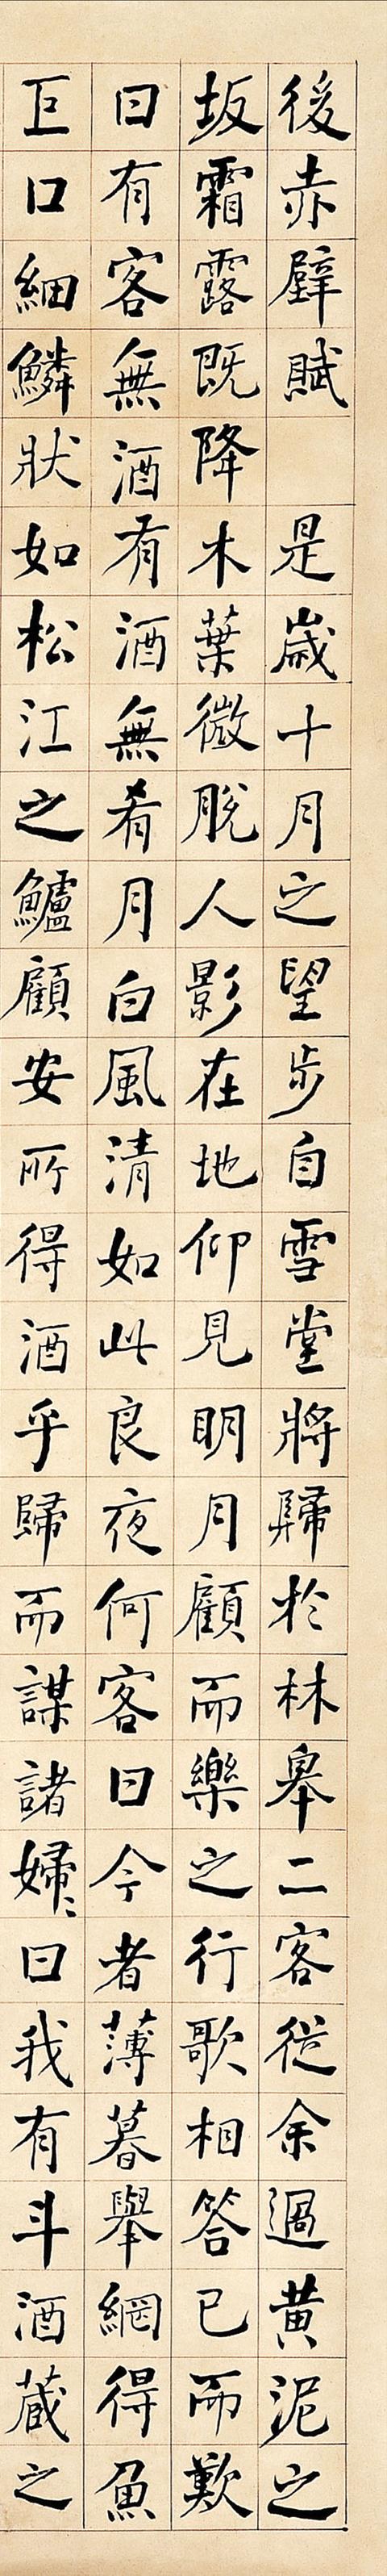 後赤壁賦 是歲十月之望步自雪堂將歸於林皋二客從余過黃泥之
坂霜露既降木葉微脫人影在地仰見明月顧而樂之行歌相答已而歎
曰有客無酒有酒無肴月白風清如此良夜何客曰今者薄暮舉網得魚
巨口細鱗狀如松江之鱸顧安所得酒乎歸而謀諸婦〻曰我有斗酒蔵之